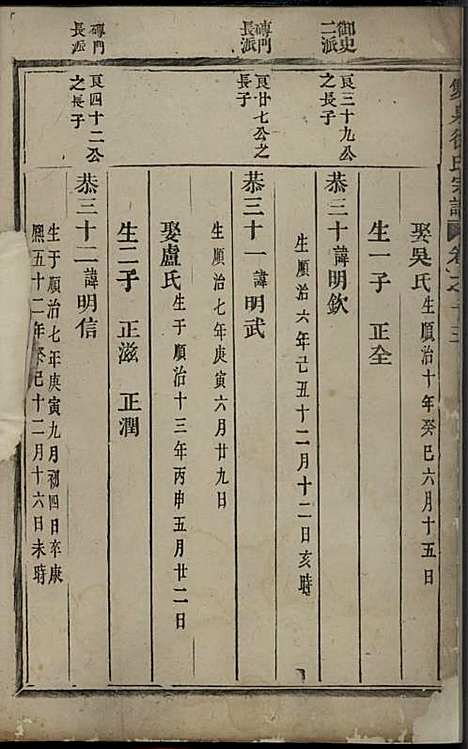 雙泉徐氏宗譜 卷之十三
娶吳氏 生順治十年癸巳六月十五日
生一子 正全
御史二派
良三十九公之長子
恭三十諱明欽
生順治六年己丑十二月十二日亥時
磚門長派
良廿七公之長子
恭三十一諱明武
生順治七年庚寅六月廿九日
娶盧氏 生于順治十三年丙申五月廿二日
生二子 正滋 正潤
磚門長派
良四十二公之長子
恭三十二諱明信
生于順治七年庚寅九月初四日卒康
熙五十二年癸巳十二月十六日未時